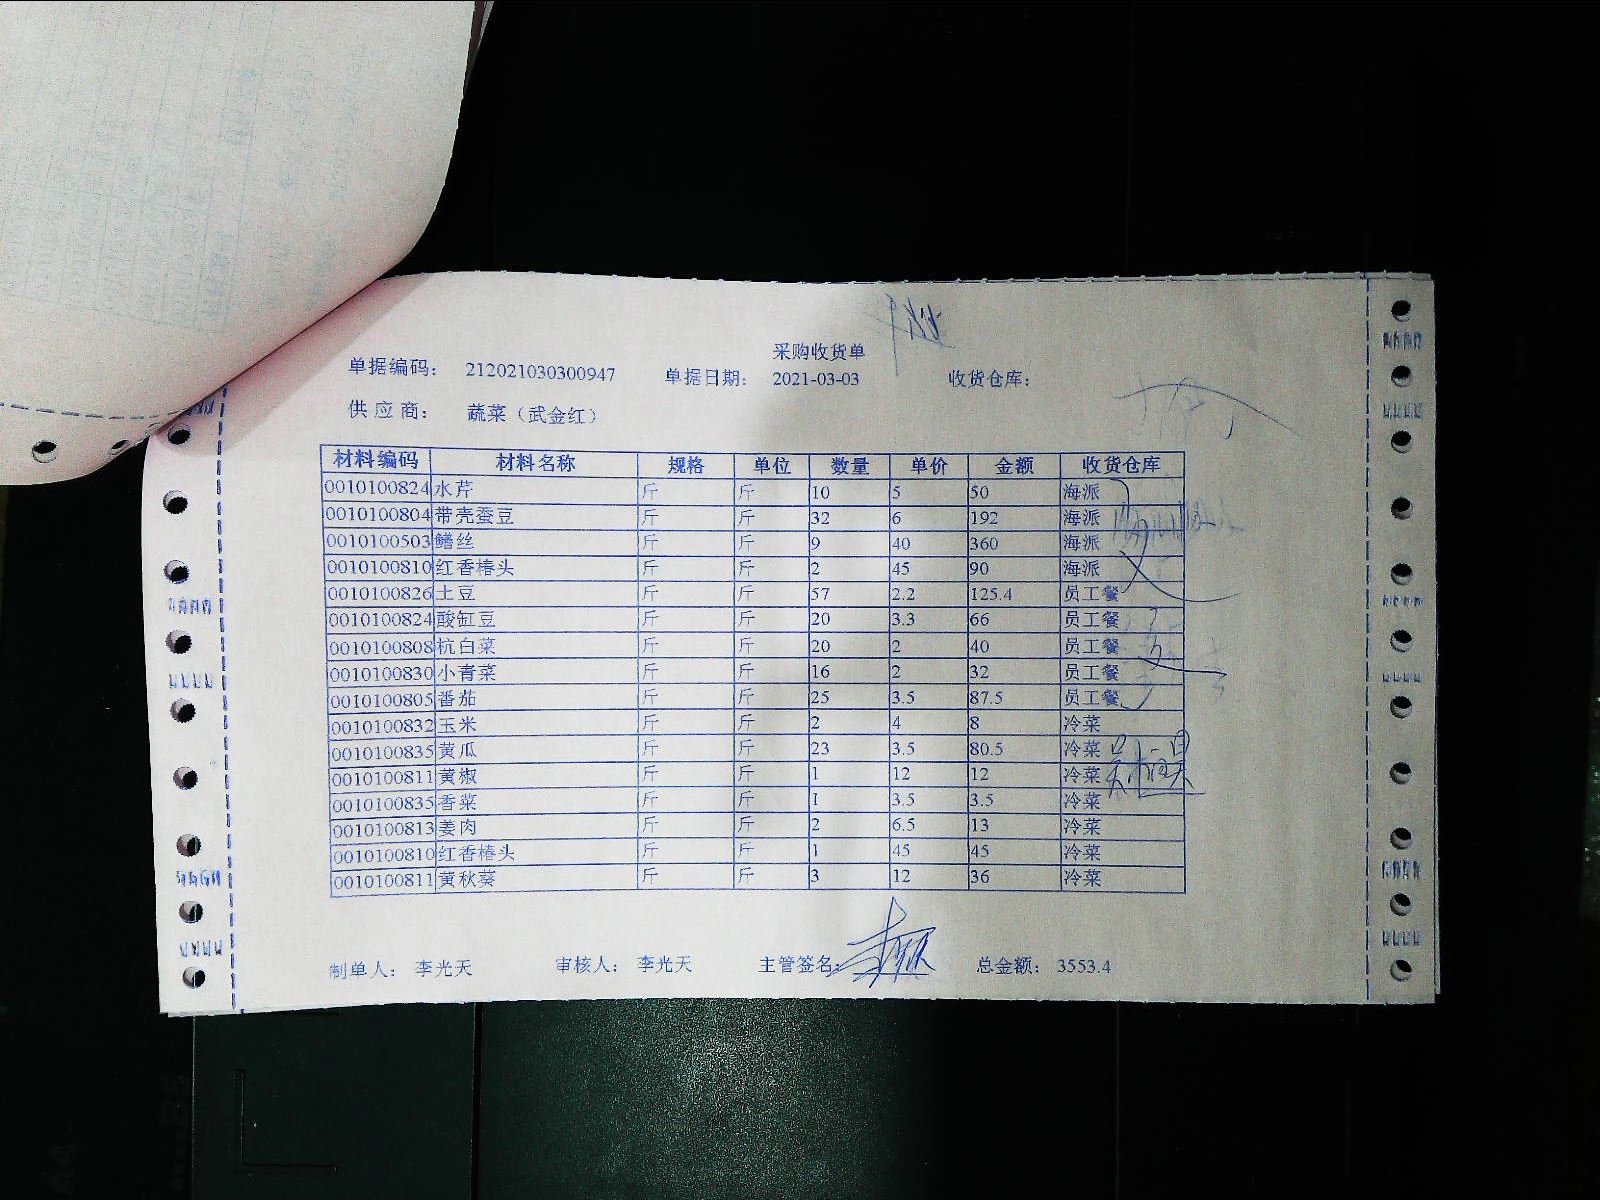 采购收货单
单据编码： 212021030300947 单据日期： 2021-03-03 收货仓库：
供 应 商： 蔬菜（武金红）
材料编码 材料名称 规格 单位 数量 单价 金额 收货仓库
0010100824 水芹 斤 斤 10 5 50 海派
0010100804 带壳蚕豆 斤 斤 32 6 192 海派
0010100503 鳝丝 斤 斤 9 40 360 海派
0010100810 红香椿头 斤 斤 2 45 90 海派
0010100826 土豆 斤 斤 57 2.2 125.4 员工餐
0010100824 酸缸豆 斤 斤 20 3.3 66 员工餐
0010100808 杭白菜 斤 斤 20 2 40 员工餐
0010100830 小青菜 斤 斤 16 2 32 员工餐
0010100805 番茄 斤 斤 25 3.5 87.5 员工餐
0010100832 玉米 斤 斤 2 4 8 冷菜
0010100835 黄瓜 斤 斤 23 3.5 80.5 冷菜
0010100811 黄椒 斤 斤 1 12 12 冷菜
0010100835 香菜 斤 斤 1 3.5 3.5 冷菜
0010100813 姜肉 斤 斤 2 6.5 13 冷菜
0010100810 红香椿头 斤 斤 1 45 45 冷菜
0010100811 黄秋葵 斤 斤 3 12 36 冷菜
制单人： 李光天 审核人： 李光天 主管签名： 总金额： 3553.4